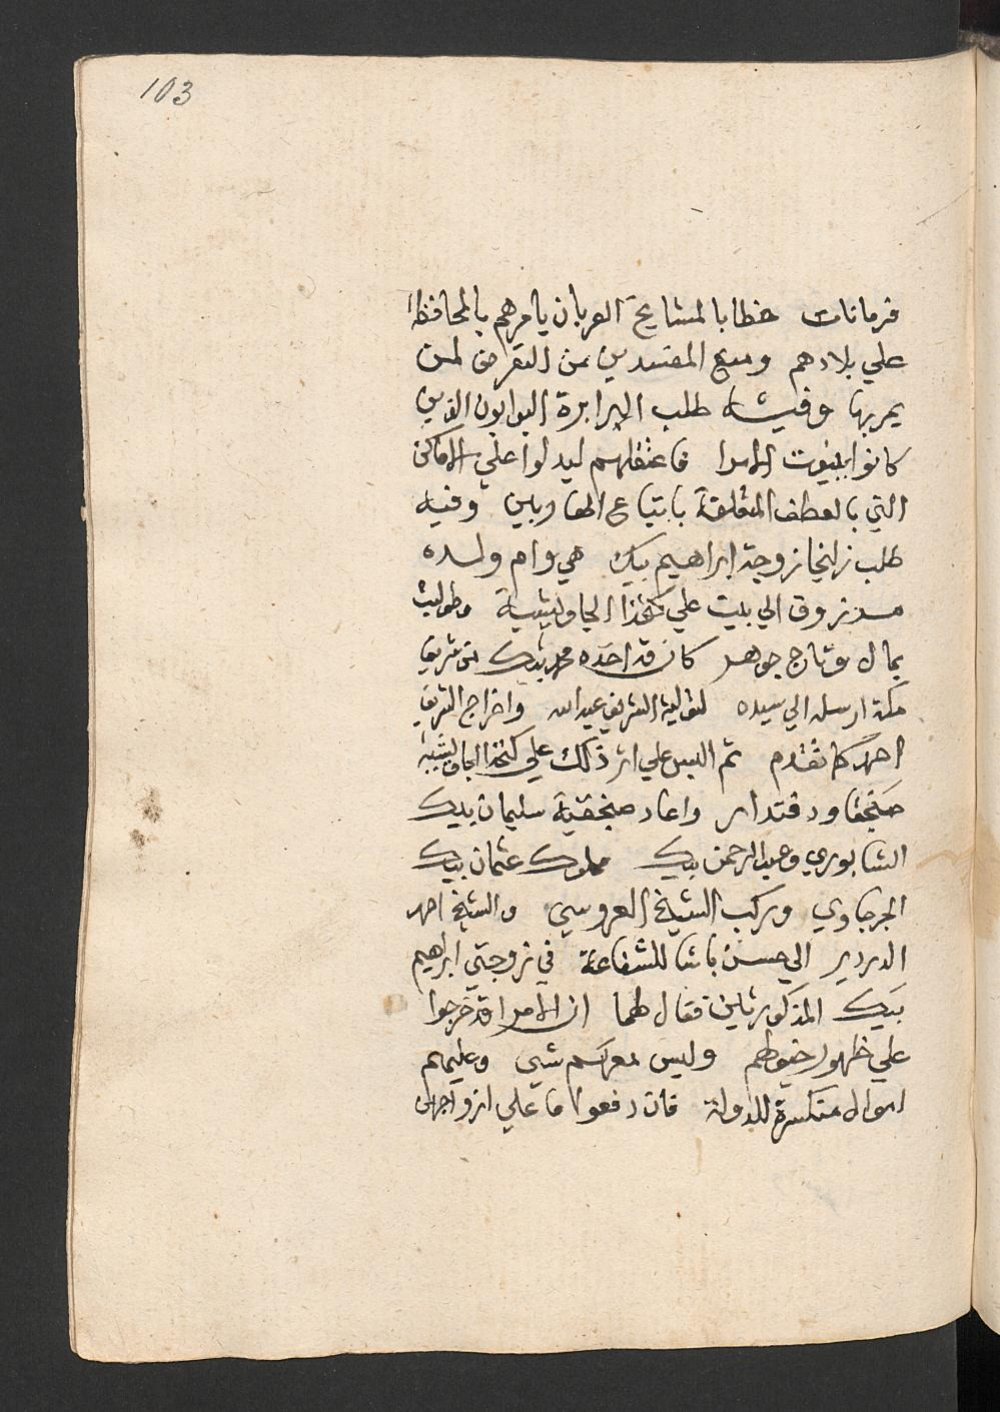 103
فرمانات خطابا لمشايخ العربان يامرهم بالمحافظة
علي بلادهم ومنع المفسدين من التعرض لمن
يمر بها وفيه طلب البرابرة البوابون الذين
كانوا ببيوت الامرا فاعتقلهم ليدلوا علي الاماكن
التي بالعطف المتعلقة باتباع الهاربين وفيه
طلب زليخا زوجة ابراهيم بيك هي وام ولده
مرزوق الي بيت علي كتخذا الجاويشية وطولبت
بمال وتاج جوهر كان قد اخذه محمد بيك من شريف
مكة ارسله الي سيده لتولية الشريف عبد الله واخراج الشريف
احمد كما تقدم ثم البس علي اثر ذلك علي كتخذا الجاويشية
صنجقا ودفتدار واعاد صنجقية سليمان بيك
الشابوري وعبد الرحمن بيك مملوك عثمان بيك
الجرجاوي وركب الشيخ العروسي والشيخ احمد
الدردير الي حسن باشا للشفاعة في زوجتي ابراهيم
بيك المذكورتاين فقال لهما ان الامرا قد خرجوا
علي ظهور خيولهم وليس معهم شي وعليهم
اموال منكسرة للدولة فان دفعوا ما علي ازواجهن